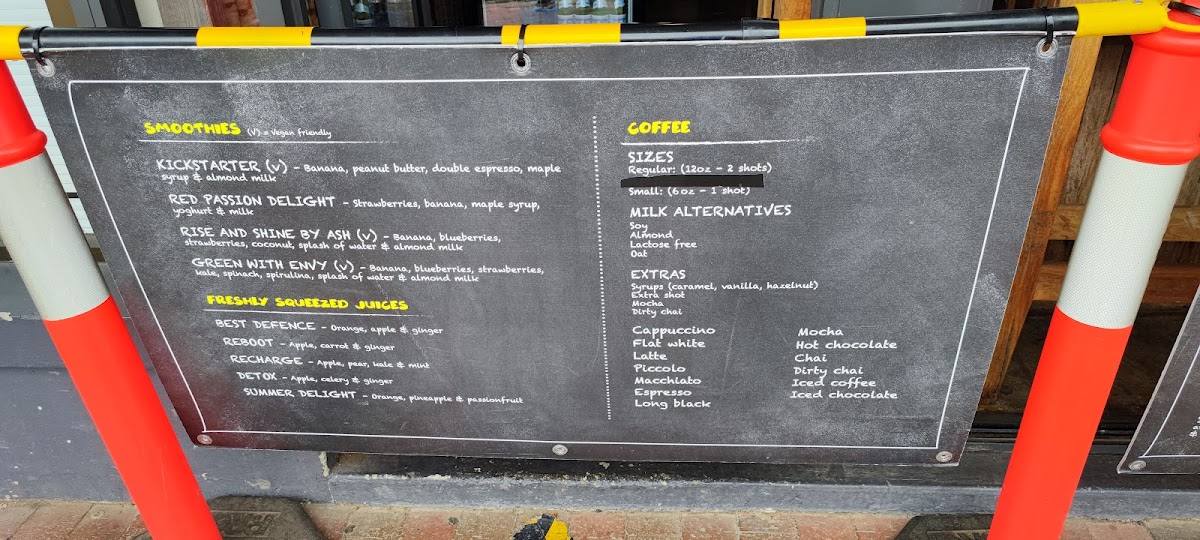 SMOOTHIES (V) = Vegan friendly
KICKSTARTER (V) - Banana, peanut butter, double espresso, maple
syrup & almond milk
RED PASSION DELIGHT - Strawberries, banana, maple syrup,
yoghurt & milk
RISE AND SHINE BY ASH (V) - Banana, blueberries,
strawberries, coconut, splash of water & almond milk
GREEN WITH ENVY (V) - Banana, blueberries, strawberries,
kale, spinach, spirulina, splash of water & almond milk
FRESHLY SQUEEZED JUICES
BEST DEFENCE - Orange, apple & ginger
REBOOT - Apple, carrot & ginger
RECHARGE - Apple, pear, kale & mint
DETOX - Apple, celery & ginger
SUMMER DELIGHT - Orange, pineapple & passionfruit
COFFEE
SIZES
Regular: (12oz - 2 shots)
Small: (6oz - 1 shot)
MILK ALTERNATIVES
Soy
Almond
Lactose free
Oat
EXTRAS
Syrups (caramel, vanilla, hazelnut)
Extra shot
Mocha
Dirty chai
Cappuccino
Flat white
Latte
Piccolo
Macchiato
Espresso
Long black
Mocha
Hot chocolate
Chai
Dirty chai
Iced coffee
Iced chocolate